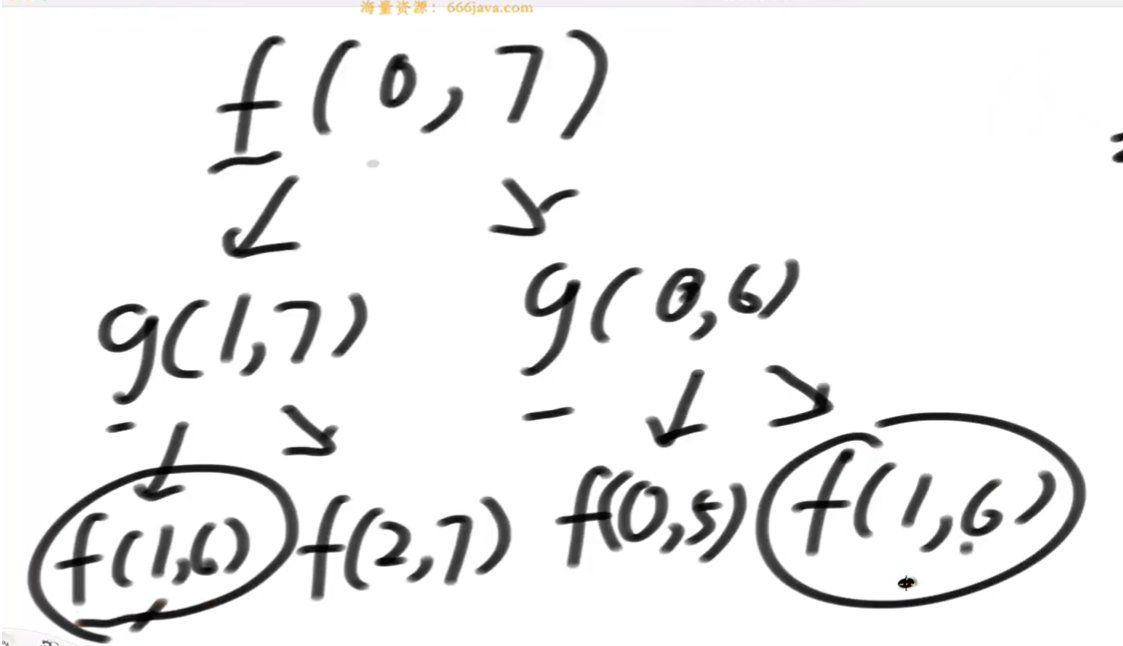 海量资源：666java.com
f(0,7)
g(1,7) g(0,6)
f(1,6) f(2,7) f(0,5) f(1,6)